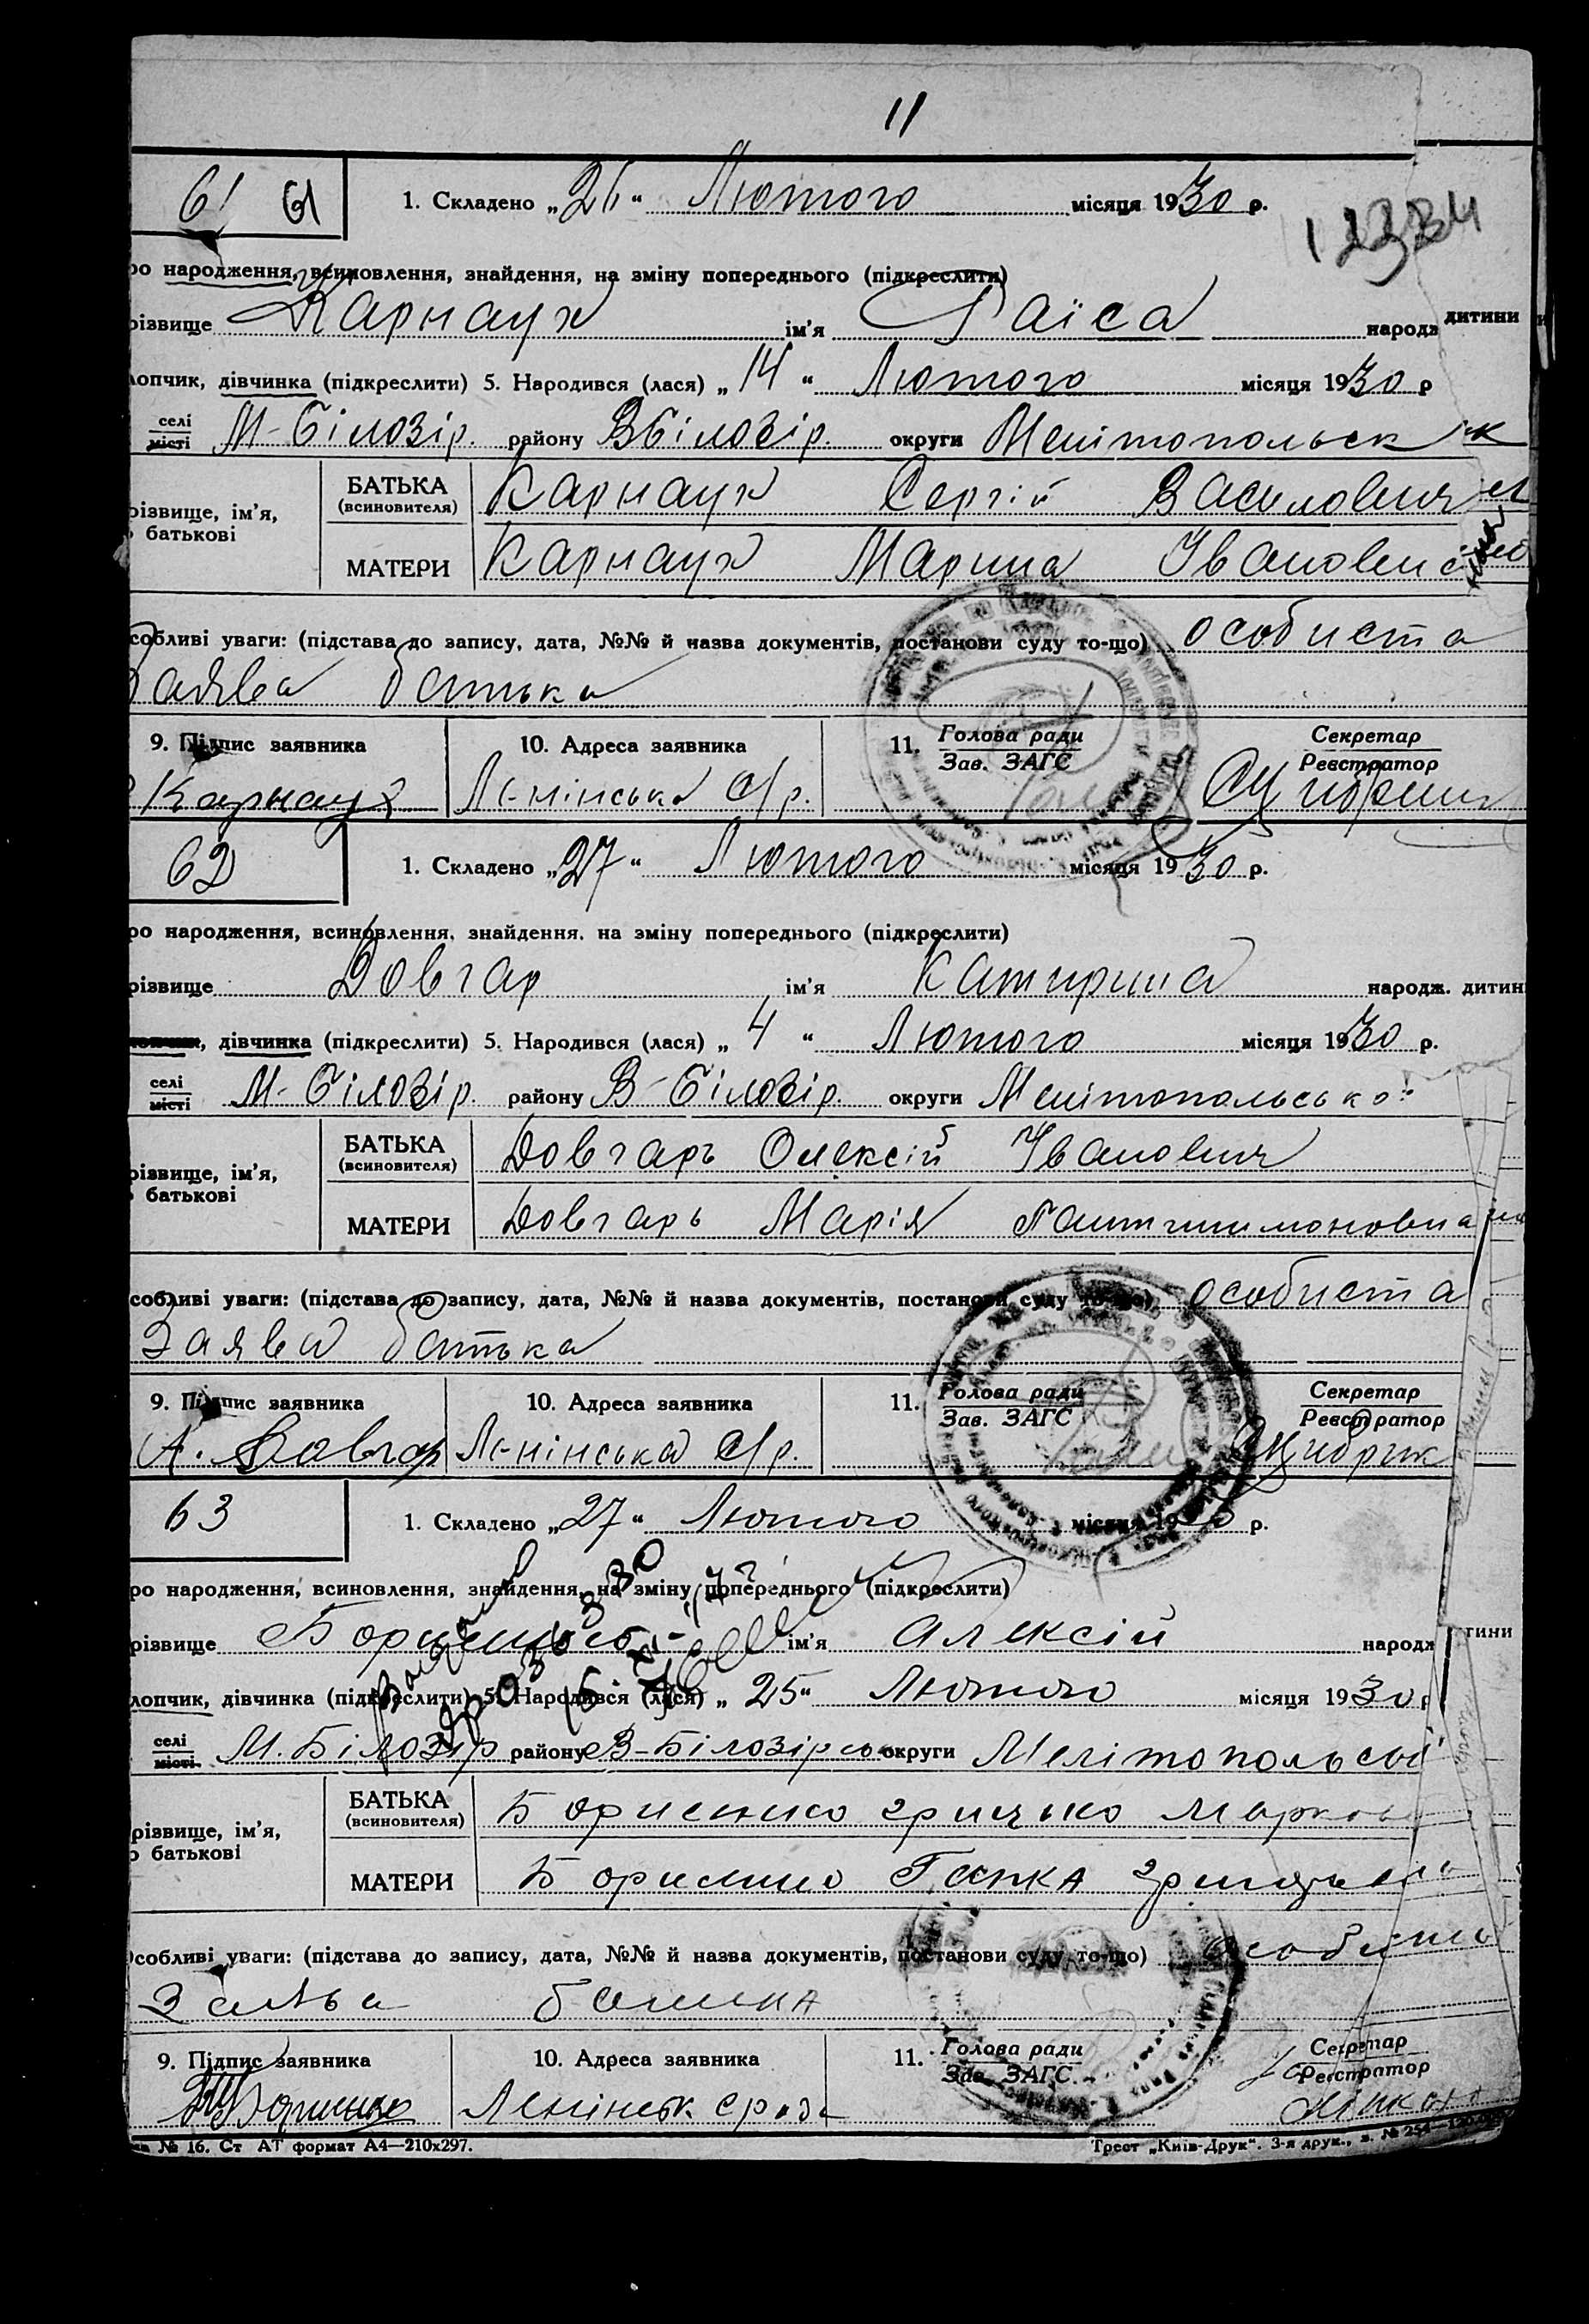 11
61 61 1. Складено „26“ Лютого місяця 1930 р.
12334
ро народження, всиновлення, знайдення, на зміну попереднього (підкреслити)
різвище Карнаух ім’я Раїса народж дитини
лопчик, дівчинка (підкреслити) 5. Народився (лася) „14“ Лютого місяця 1930 р
селі місті М-Білозір. району ВБілозір. округи Мелітопольськ
різвище, ім’я, батькові БАТЬКА (всиновителя) Карнаух Сергій Василович
МАТЕРИ Карнаух Марина Івановна
собливі уваги: (підстава до запису, дата, №№ й назва документів, постанови суду то-що) особиста
Заява батька
9. Підпис заявника 10. Адреса заявника 11. Голова ради Зав. ЗАГС Секретар Реєстратор
Карнаух Ленінська с/р.
62 1. Складено „27“ Лютого місяця 1930 р.
ро народження, всиновлення, знайдення, на зміну попереднього (підкреслити)
різвище Довгар ім’я Катирина народж. дитин
дівчинка (підкреслити) 5. Народився (лася) „4“ Лютого місяця 1930 р.
селі місті М-Білозір. району В-Білозір. округи Мелітопольської
різвище, ім’я, батькові БАТЬКА (всиновителя) Довгарь Олексій Іванович
МАТЕРИ Довгарь Марія
собливі уваги: (підстава до запису, дата, №№ й назва документів, постанови суду то-що) особиста
Заява батька
9. Підпис заявника 10. Адреса заявника 11. Голова ради Зав. ЗАГС Секретар Реєстратор
А. Довгар Ленінська с/р.
63 1. Складено „27“ Лютого місяця 1930 р.
ро народження, всиновлення, знайдення, на зміну попереднього (підкреслити)
різвище Борисенко ім’я Алексій народж тини
лопчик, дівчинка (підкреслити) 5. Народився (лася) „25“ Лютого місяця 1930 р
селі місті М. Білозір району В-Білозірсь округи Мелітопольсь
різвище, ім’я, о батькові БАТЬКА (всиновителя) Борисенко Грицько Марков
МАТЕРИ Борисенко Ганка
Особливі уваги: (підстава до запису, дата, №№ й назва документів, постанови суду то-що) особиста
Заява батька
9. Підпис заявника 10. Адреса заявника 11. Голова ради Зав. ЗАГС Секретар Реєстратор
Борисенко Ленінськ срада
№ 16. Ст АТ формат А4—210х297. Трест „Київ-Друк“. 3-я друк., з. № 254